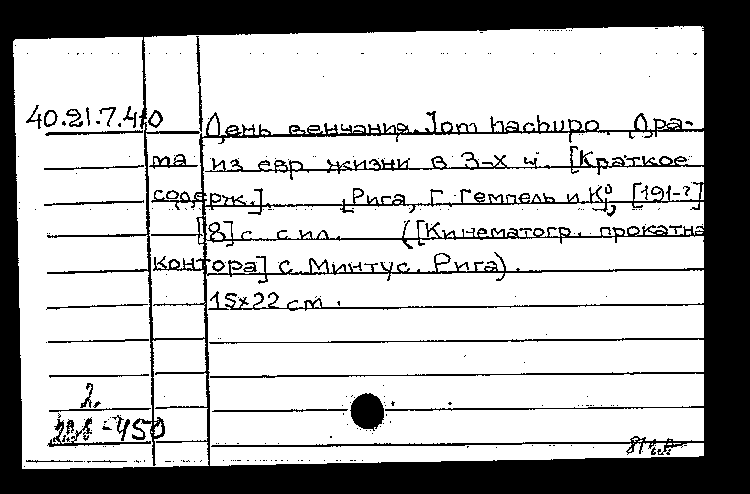 40.21.7.410
День венчания. Jom hachupo. Дра-
ма из евр. жизни в 3-х ч. [Краткое
содерж.]. Рига, Г. Гемпель и Кº, [191-?]
[8] с. с ил. ([Кинематогр. прокатна
контора] С. Минтус. Рига).
15x22 cm.
2.
-450